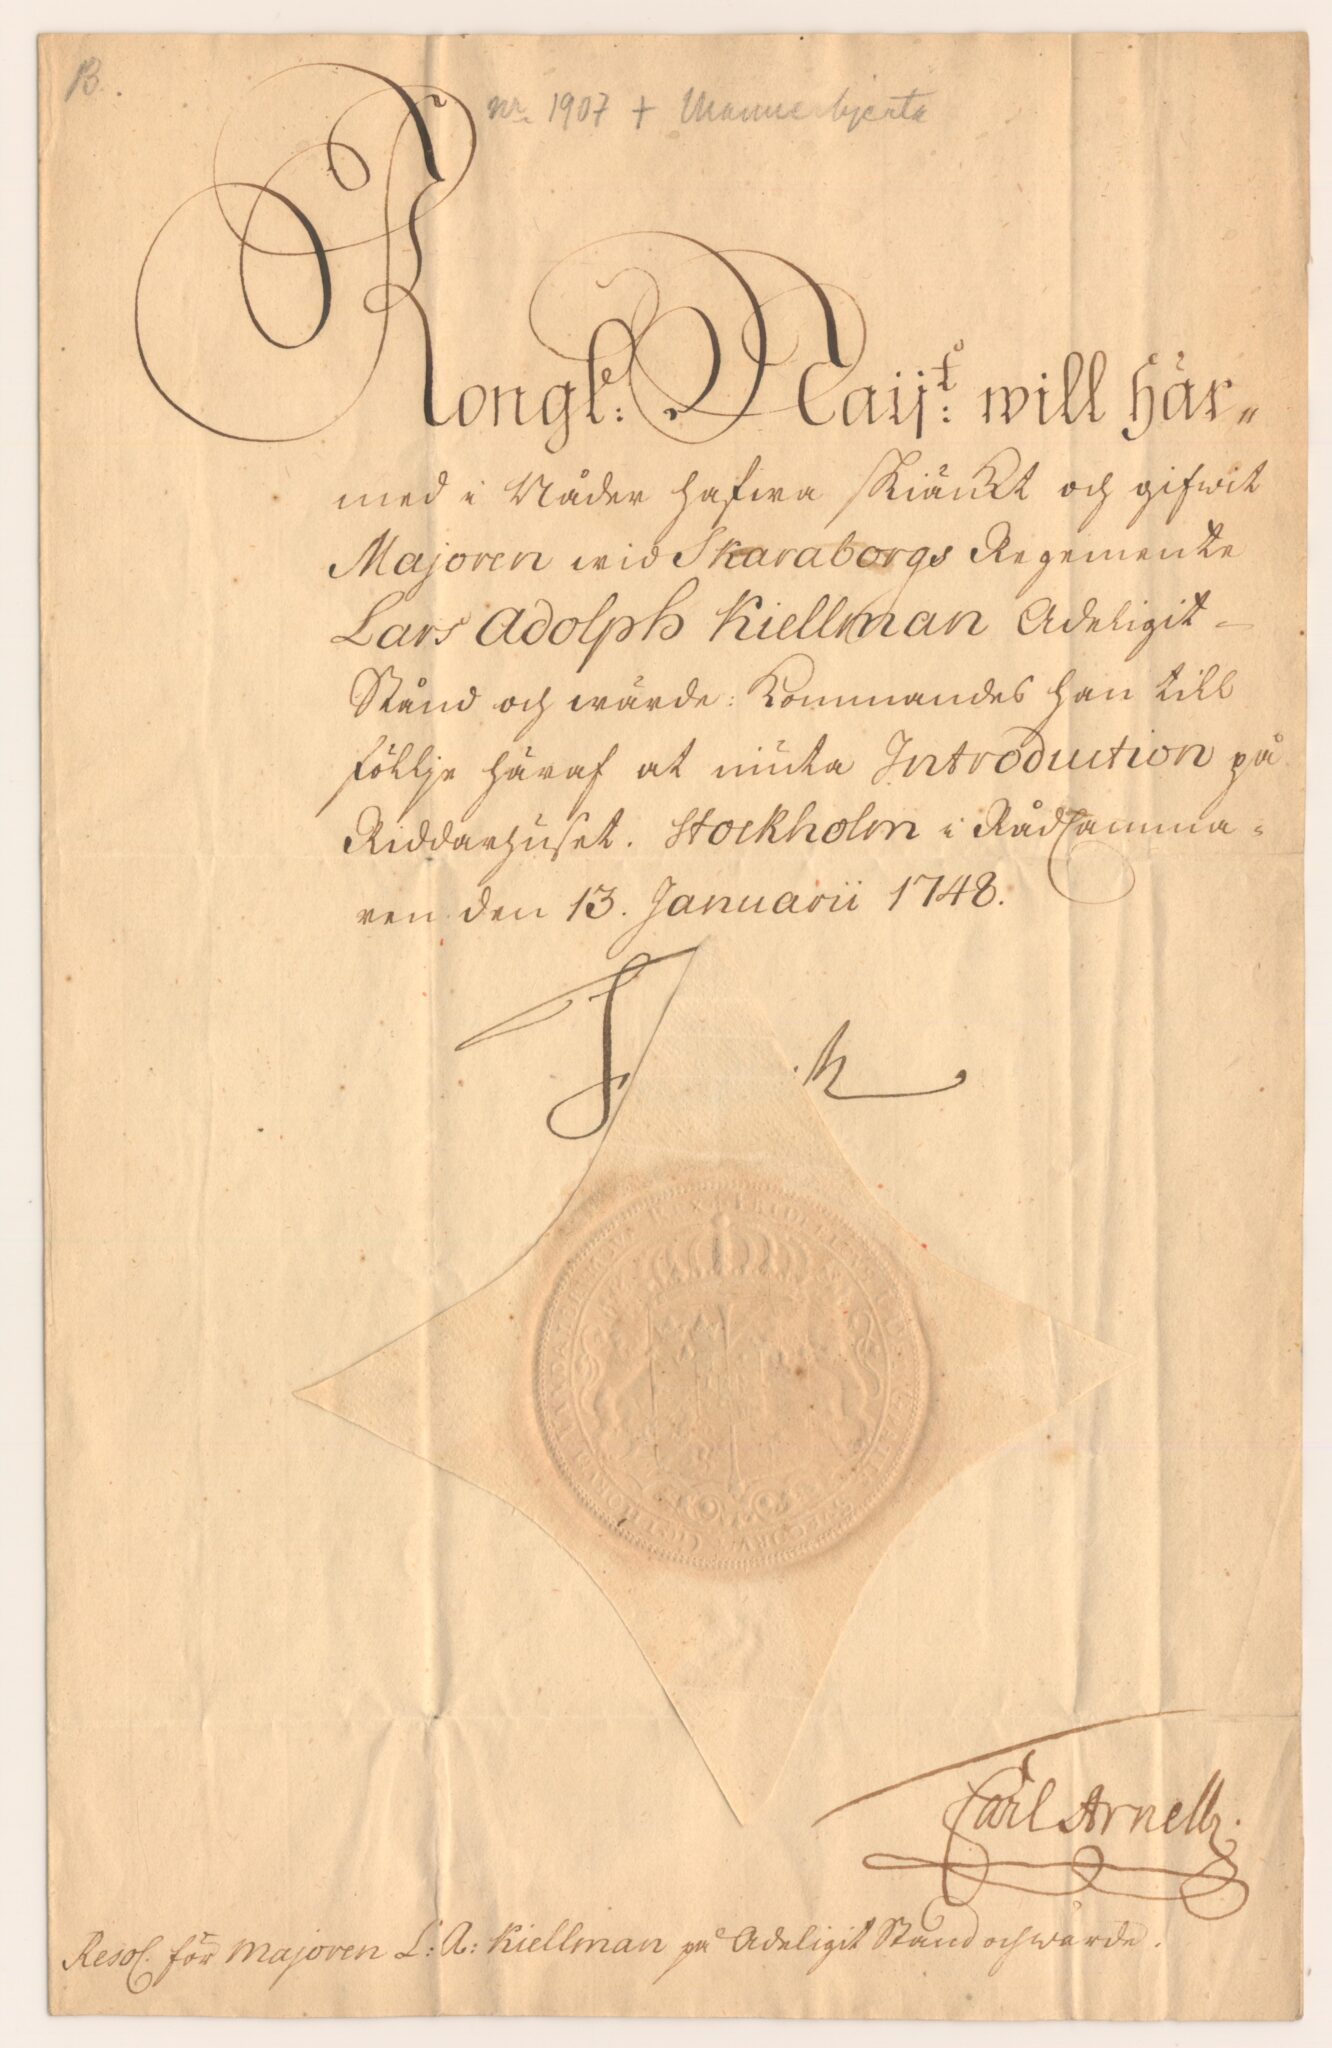 B.
nr. 1907 + Mannerhjerta
Kongl: Maijt: will här=
med i Nåder hafwa skiänckt och gifwit
Majoren wid Skaraborgs Regemente
Lars Adolph Kiellman Adeligit
Stånd och wärde: kommandes han till
föllje häraf at niuta Introduction på
Riddarhuset. Stockholm i Rådcamma=
ren den 13. Januarii 1748.
Carl Arnell
Resol. för Majoren L: A: Kiellman på Adeligit Stånd och wärde.